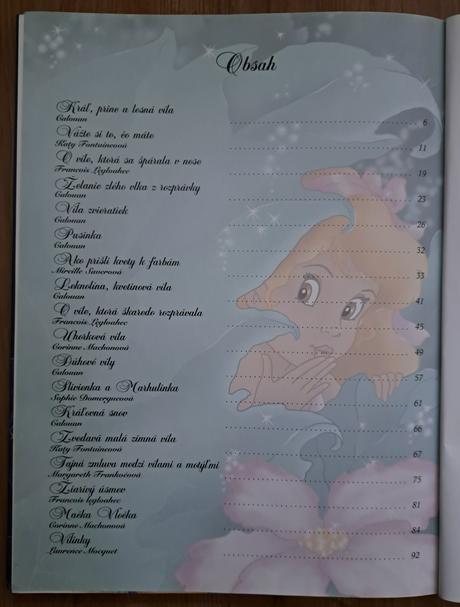 Obsah
Kráľ, princ a lesná víla ........ 6
Calouan
Vážte si to, čo máte ........ 11
Katy Fontaineová
O víle, ktorá sa špárala v nose ........ 19
Francois Legloahec
Želanie zlého vlka z rozprávky ........ 23
Calouan
Víla zvieratiek ........ 26
Calouan
Pusinka ........ 32
Calouan
Ako prišli kvety k farbám ........ 33
Mireille Saverová
Leknolína, kvetinová víla ........ 41
Calouan
O víle, ktorá škaredo rozprávala ........ 45
Francois Legloahec
Uhorková víla ........ 49
Corinne Machonová
Dúhové víly ........ 57
Calouan
Slivienka a Marhulinka ........ 61
Sophie Domergueová
Kráľovná snov ........ 66
Calouan
Zvedavá malá zimná víla ........ 67
Katy Fontaineová
Tajná zmluva medzi vílami a motýľmi ........ 75
Margareth Frankočová
Žiarivý úsmev ........ 81
Francois legloahec
Mačka Vločka ........ 84
Corinne Machonová
Vílinky ........ 92
Laurence Mocquet